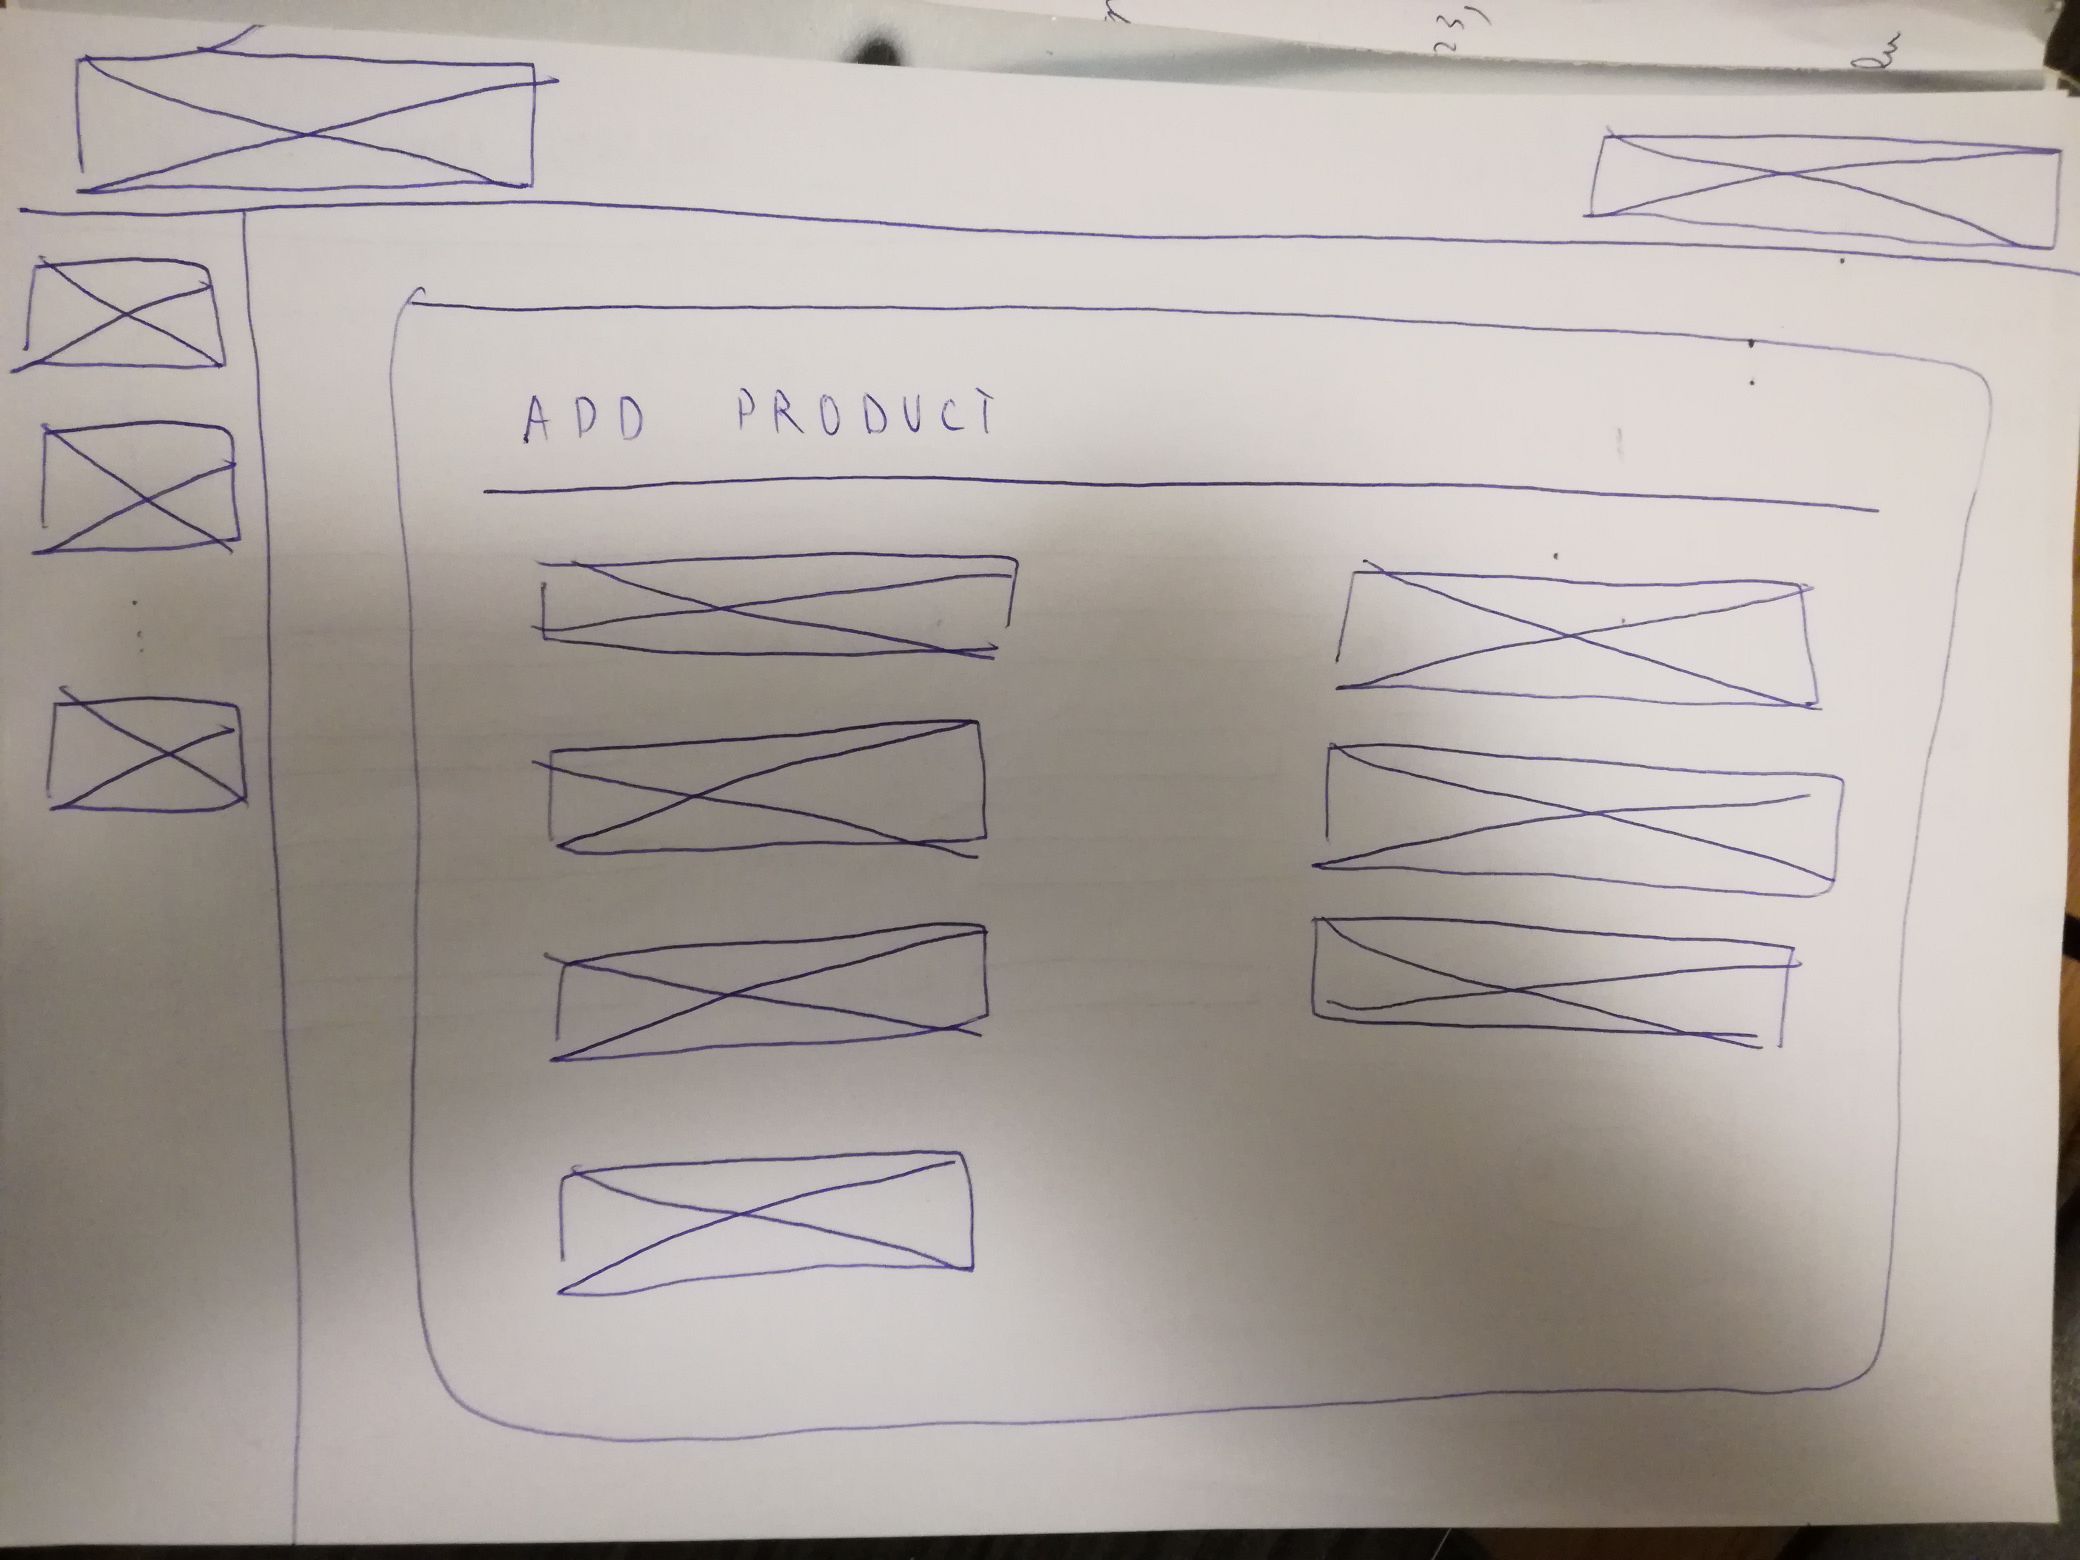 23,
ADD PRODUCT